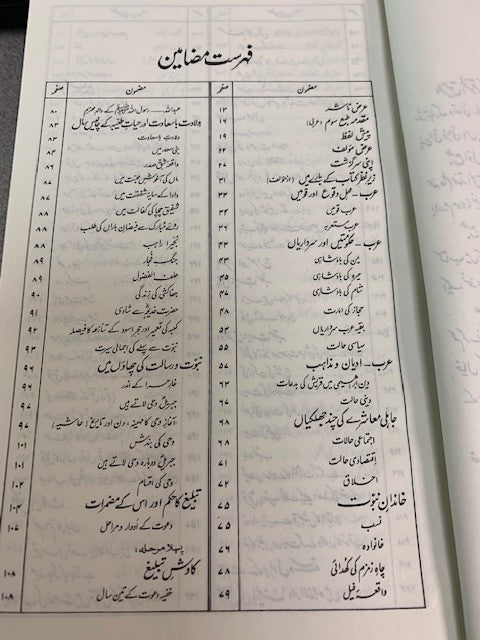 فہرست مضامین
مضمون صفحہ
عرض ناشر ۱۳
مقدمہ طبع سوم (عربی) ۱۶
پیش لفظ ۱۹
عرض مؤلف ۲۲
اپنی سرگزشت ۲۷
زیر نظر کتاب کے بارے میں (از مؤلف) ۳۱
عرب – محل وقوع اور قومیں ۳۳
عرب قومیں ۳۴
عرب مستعربہ ۳۶
عرب – حکومتیں اور سرداریاں ۴۳
یمن کی بادشاہی ۴۳
حیرہ کی بادشاہی ۴۵
شام کی بادشاہی ۴۷
حجاز کی امارت ۴۸
بقیہ عرب سرداریاں ۵۴
سیاسی حالت ۵۵
عرب – ادیان و مذاہب ۵۷
دین ابراہیمی میں قریش کی بدعات ۶۳
دینی حالت ۶۷
جاہلی معاشرے کی چند جھلکیاں ۶۸
اجتماعی حالات ۶۸
اقتصادی حالت ۷۱
اخلاق ۷۲
خاندان نبوت ۷۵
نسب ۷۵
خانوادہ ۷۶
چاہ زمزم کی کھدائی ۷۸
واقعۂ فیل ۷۹
مضمون صفحہ
عبداللہ — رسول اللہ ﷺ کے والد محترم ۸۰
ولادت باسعادت اور حیات طیبہ کے چالیس سال ۸۳
ولادت باسعادت ۸۳
بنی سعد میں ۸۴
واقعۂ شق صدر ۸۶
ماں کی آغوش محبت میں ۸۷
دادا کے سایۂ شفقت میں ۸۷
شفیق چچا کی کفالت میں ۸۸
روئے مبارک سے فیضان باراں کی طلب ۸۸
بحیرا راہب ۸۸
جنگ فجار ۸۹
حلف الفضول ۸۹
جفاکشی کی زندگی ۹۰
حضرت خدیجہؓ سے شادی ۹۱
کعبہ کی تعمیر اور حجر اسود کے تنازعہ کا فیصلہ ۹۲
نبوت سے پہلے کی اجمالی سیرت ۹۴
نبوت و رسالت کی چھاؤں میں ۹۶
غار حرا کے اندر ۹۶
جبریلؑ وحی لاتے ہیں ۹۶
آغاز وحی کا مہینہ، دن اور تاریخ (حاشیہ) ۹۷
وحی کی بندش ۱۰۱
جبریلؑ دوبارہ وحی لاتے ہیں ۱۰۱
وحی کی اقسام ۱۰۲
تبلیغ کا حکم اور اس کے مضمرات ۱۰۴
دعوت کے ادوار و مراحل ۱۰۷
پہلا مرحلہ:
کاوش تبلیغ ۱۰۸
خفیہ دعوت کے تین سال ۱۰۸